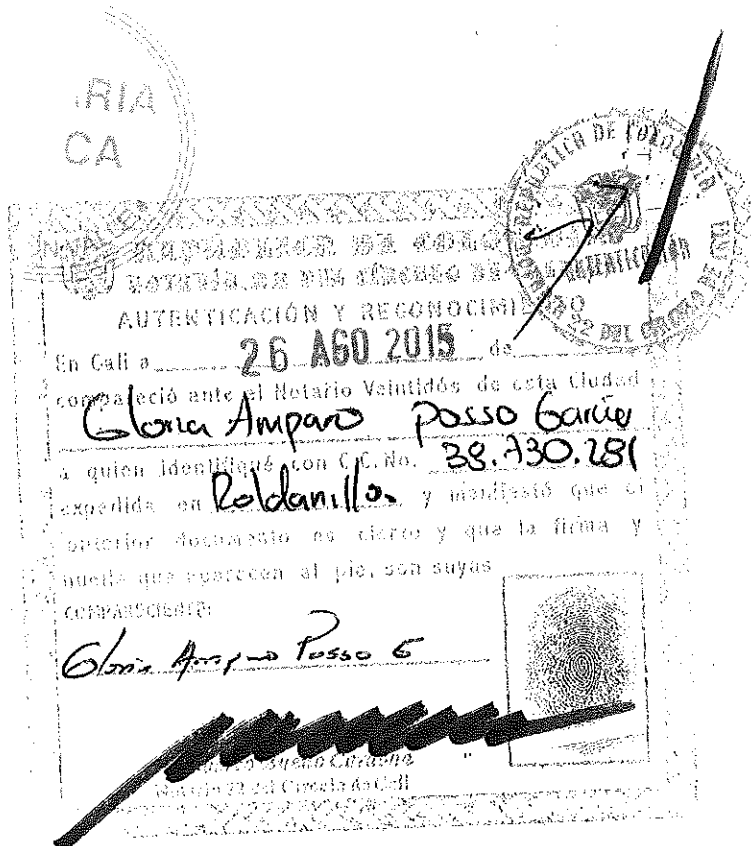 RIA
CA
REPÚBLICA DE COLOMBIA
REPÚBLICA DE COLO
NOTARÍA 22 DEL CÍRCULO DE
AUTENTICACIÓN Y RECONOCIMI
En Cali a 26 AGO 2015 de
compareció ante el Notario Veintidós de esta Ciudad
Gloria Amparo Posso Garcia
a quien identifiqué con C.C. No. 38.730.281
expedida en Roldanillo y manifestó que el
anterior documento es cierto y que la firma y
huella que aparecen al pie, son suyas
COMPARECIENTE:
Gloria Amparo Posso G
Notario 22 del Círculo de Cali